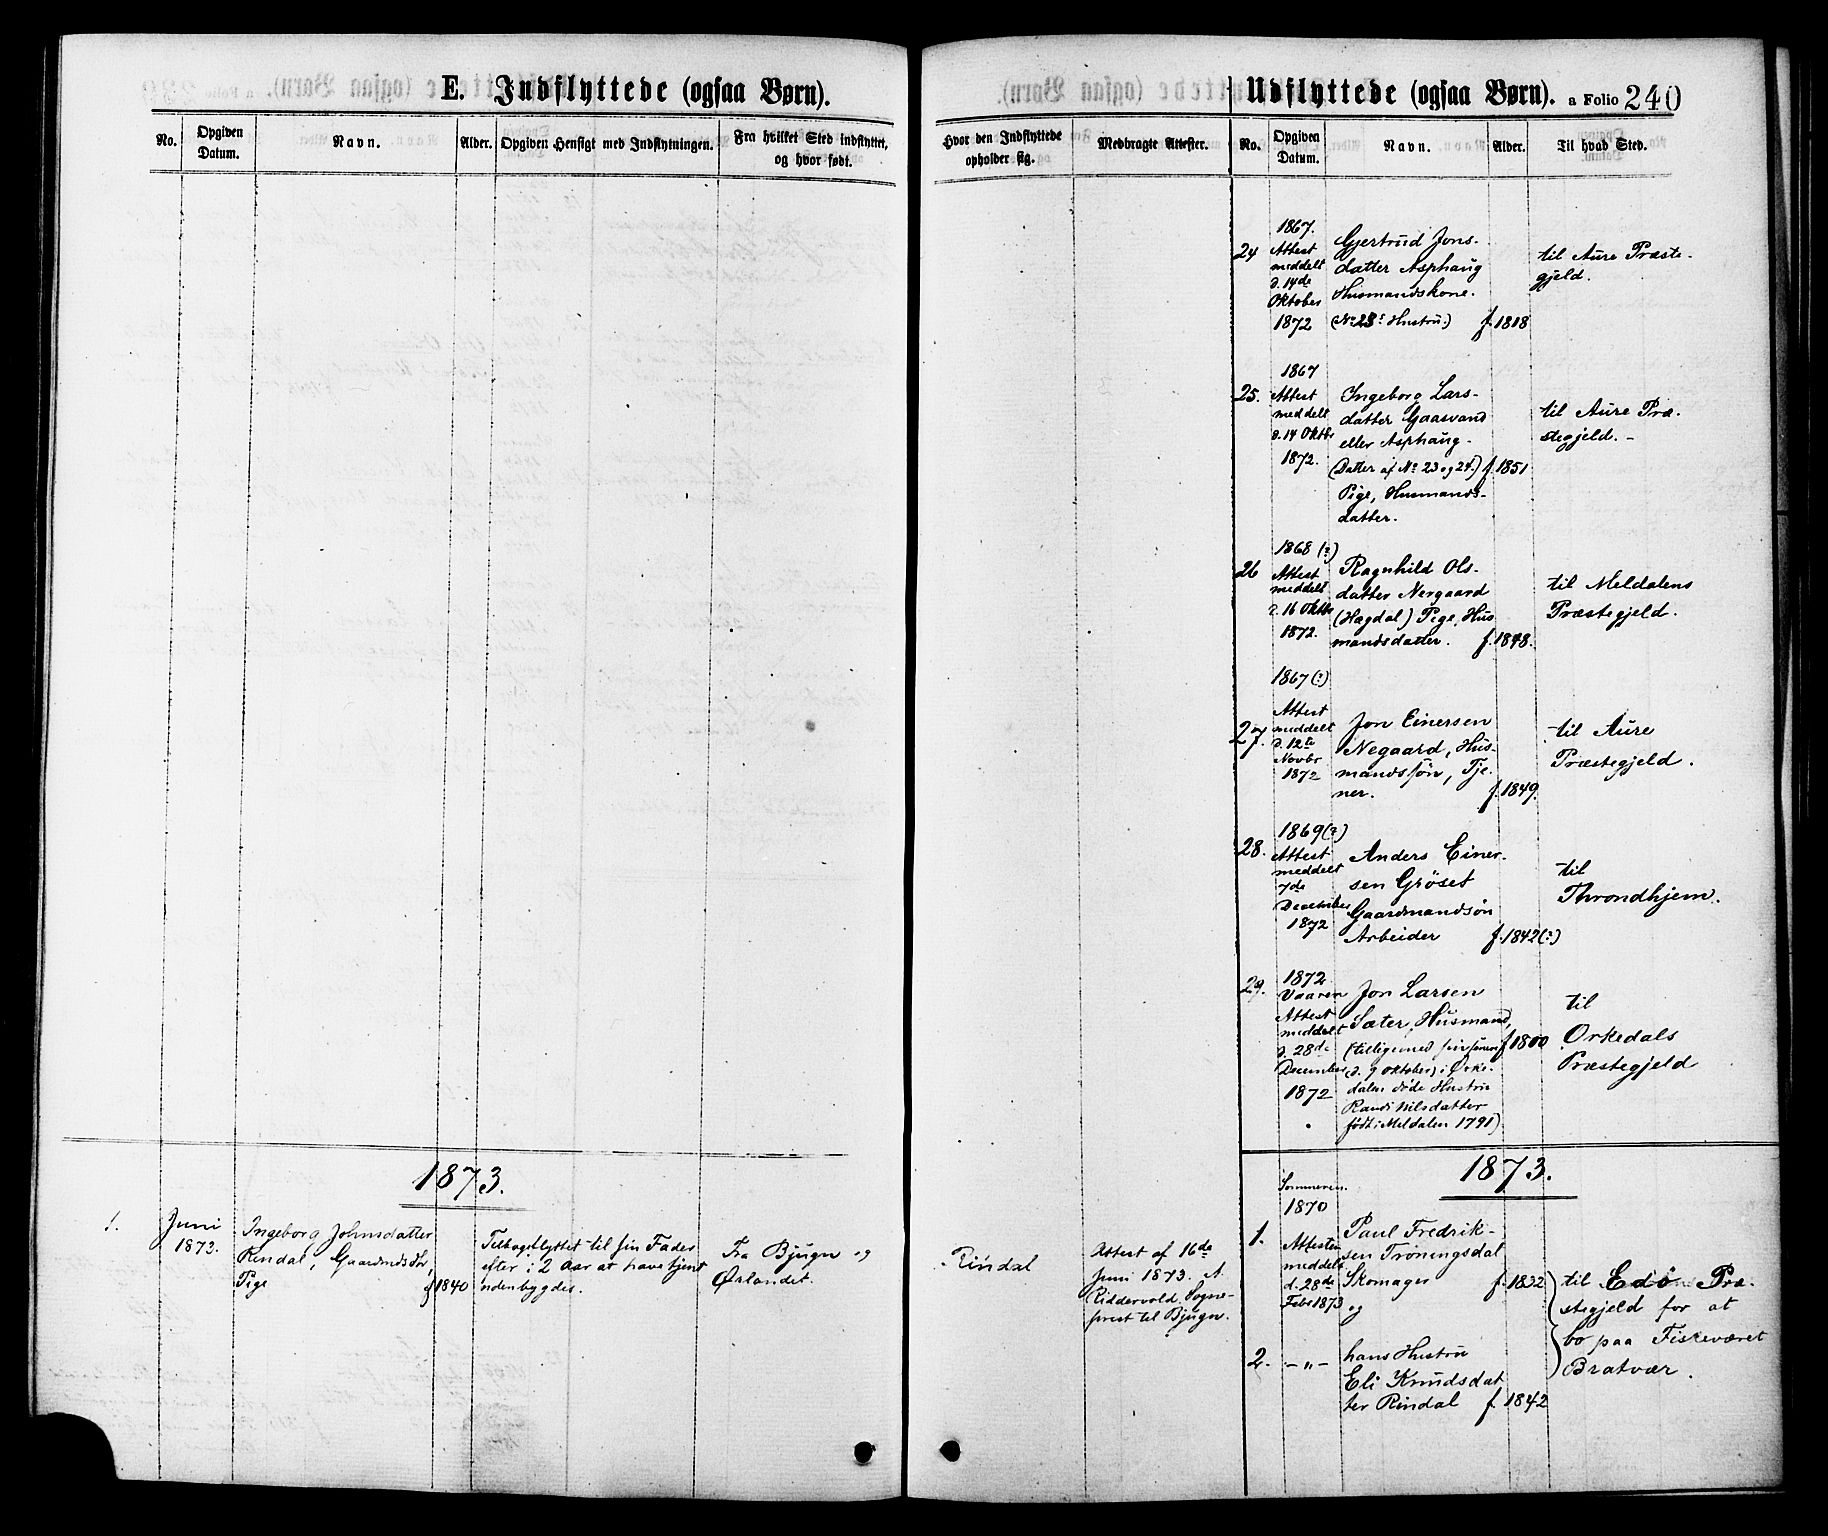 E. Indflyttede (ogsaa Børn).
No.
Opgiven
Datum.
Navn.
Alder.
Opgiven Hensigt med Indflytningen.
Fra hvilket Sted indflyttet,
og hvor født.
1873.
1.
Juni
1873.
Ingeborg Johnsdatter
Rindal, Gaardmdsdtr,
Pige
f 1840
Tilbageflyttet til sin Fader
efter i 2 Aar at have tjent
udenbygdes.
Fra Bjugn og
Ørlandet.
Udflyttede (ogsaa Børn). a Folio 240
Hvor den Indflyttede
opholder sig.
Medbragte Attester.
No.
Opgiven
Datum.
Navn.
Alder.
Til hvad Sted.
Rindal
Attest af 16de
Juni 1873. A.
Riddervold. Sogne-
prest til Bjugn.
24
1867.
Attest
meddelt
d. 14de
Oktober
1872
Gjertrud Jons-
datter Asphaug
Husmandskone.
(No 23s Hustru.)
f. 1818
til Aure Præste-
gjeld.
25.
1867
Attest
meddelt
d. 14 Oktbr
1872.
Ingeborg Lars-
datter Gaasvand
eller Asphaug.
(Datter af No 23 og 24.)
Pige, Husmands-
datter.
f. 1851
til Aure Præ-
stegjeld. -
26
1868 (?)
Attest
meddelt
d. 16 Oktbr
1872.
Ragnhild Ols-
datter Nergaard
(Hægdal) Pige, Hus
mandsdatter.
f. 1848.
til Meldalens
Præstegjeld.
27.
1867 (?)
Attest
meddelt
d. 12te
Novbr
1872
Jon Einersen
Negaard, Hus-
mandssøn, Tje-
ner.
f. 1849.
til Aure
Præstegjeld.
28.
1869 (?)
Attest
meddelt
7de
December
1872
Anders Einer-
sen Grøset
Gaardmandsøn
Arbeider
f. 1842 (?)
til
Throndhjem.
29.
1872
Vaaren
Attest
meddelt
d. 28de
December
1872
Jon Larsen
Sæter, Husmand,
(tilligemed sin senere
(d. 9 Oktober) i Orke-
dalen døde Hustru
Randi Nilsdatter
født i Meldalen 1791)
f 1800
til
Orkedals
Præstegjeld
1873.
1.
Sommeren
1870
Attesten
meddelt
d. 28de
Febr 1873
Paul Fredrik-
sen Trøningsdal
Skomager
og
f. 1832
2.
- " -
hans Hustru
Eli Knudsdat
ter Rindal
f. 1842
til Edø Præ-
stegjeld for at
bo paa Fiskeværet
Bratvær.